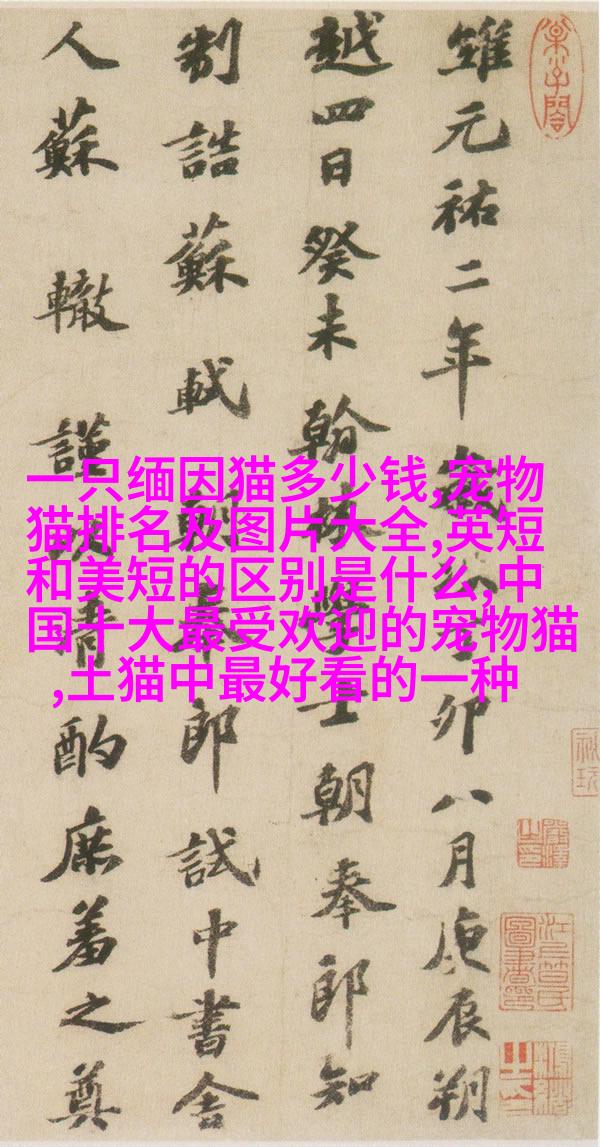 維元祐二年歲卯八月庚辰朔
越四日癸未翰林學士朝奉郎知
制誥蘇軾朝奉郎試中書舍
人蘇轍謹以清酌庶羞之奠
一只缅因猫多少钱,宠物
猫排名及图片大全,英短
和美短的区别是什么,中
国十大最受欢迎的宠物猫
,土猫中最好看的一种